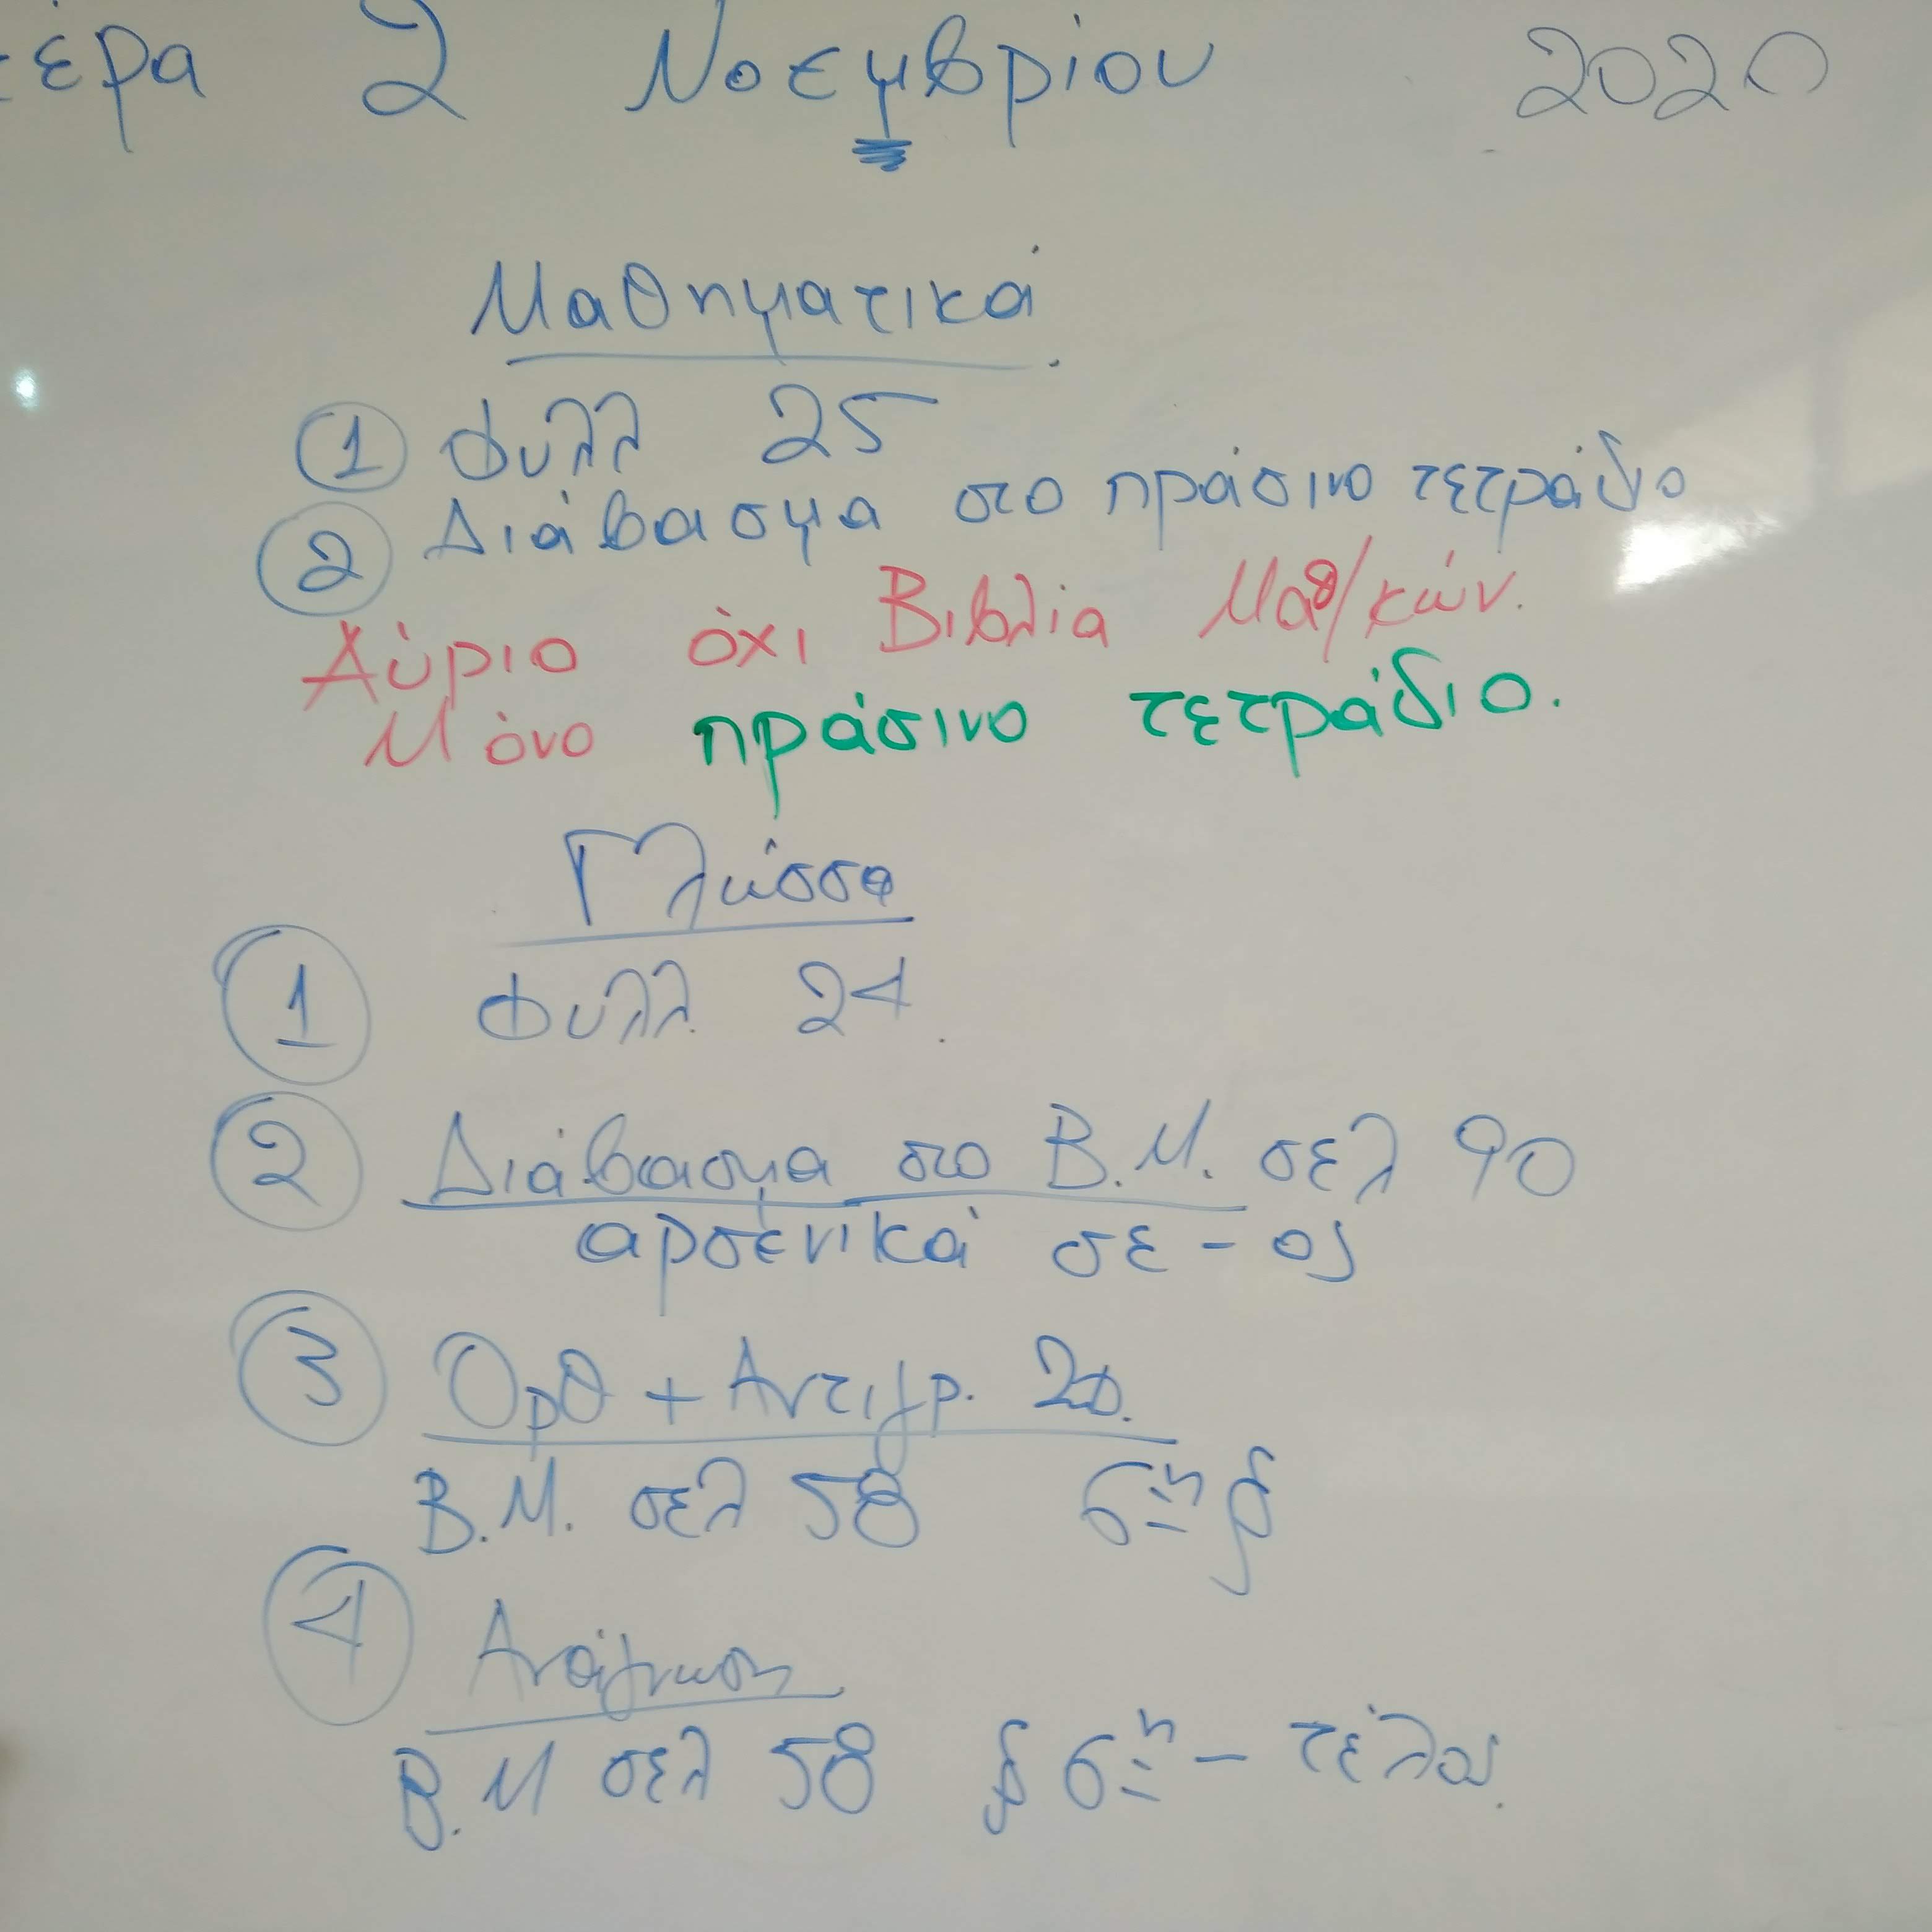 έρα 2 Νοεμβρίου 2020
Μαθηματικά
① Φυλλ 25
② Διάβασμα στο πράσινο τετράδιο
Αύριο όχι Βιβλία Μαθ/κών.
Μόνο πράσινο τετράδιο.
Γλώσσα
① Φυλλ 24.
② Διάβασμα στο Β.Μ. σελ 90
αρσενικά σε - ος
③ Ορθ + Αντιγρ.
Β.Μ. σελ 58 6η §
④ Ανάγνωση
Β.Μ σελ 58 § 6η - τέλος.